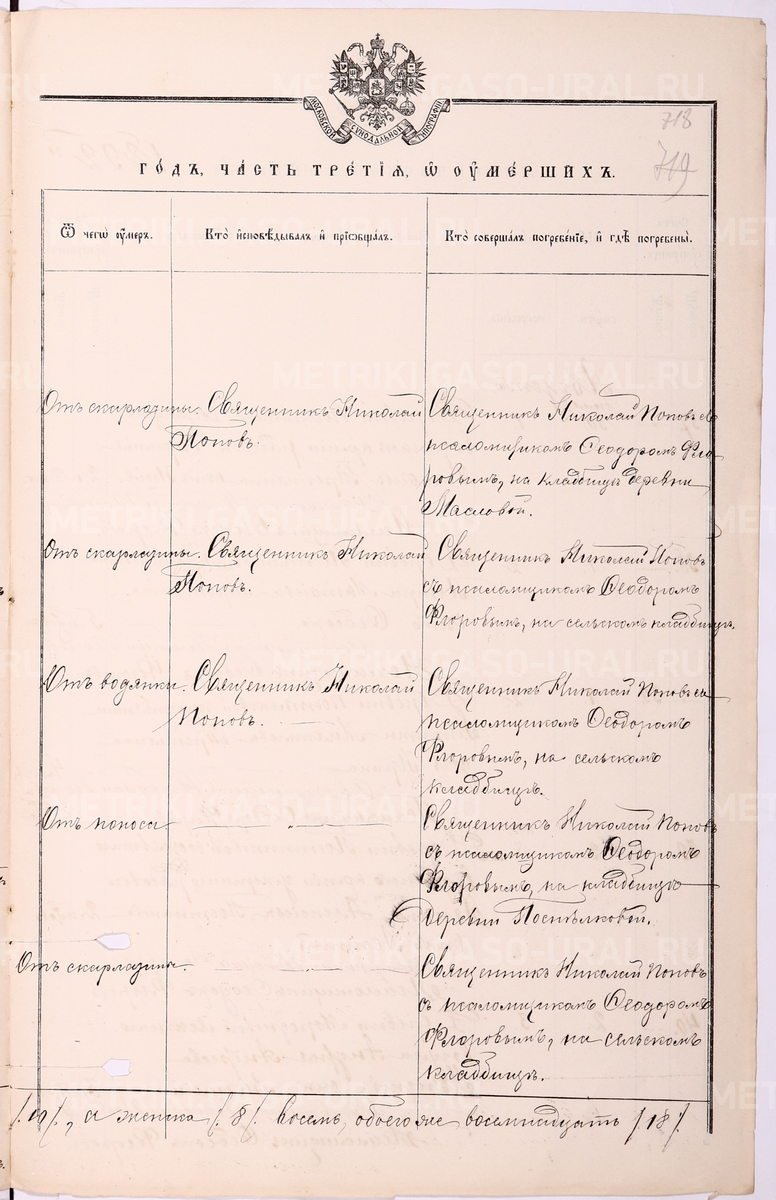 МОСКОВСКОЙ СѴНОДАЛЬНОЙ ТИПОГРАФІИ
718
719
ГО́ДЪ, ЧА́СТЬ ТРЕ́ТІѦ, Ѽ ОУ҆МЕ́РШИХЪ.
Ѿ чегѡ̀ оу҆́меръ.
Кто̀ и҆сповѣ́дывалъ и҆ прїѡбща́лъ.
Кто̀ соверша́лъ погребе́нїе, и҆ гдѣ̀ погребены̀.
Отъ скарлазины.
Священникъ Николай
Поповъ.
Священникъ Николай Поповъ съ
псаломщикомъ Ѳеодоромъ Фло-
ровымъ, на кладбищѣ деревни
Масловой.
Отъ скарлазины.
Священникъ Николай
Поповъ.
Священникъ Николай Поповъ
съ псаломщикомъ Ѳеодоромъ
Флоровымъ, на сельскомъ кладбищѣ.
Отъ водянки.
Священникъ Николай
Поповъ.
Священникъ Николай Поповъ съ
псаломщикомъ Ѳеодоромъ
Флоровымъ, на сельскомъ
кладбищѣ.
Отъ поноса
Священникъ Николай Поповъ
съ псаломщикомъ Ѳеодоромъ
Флоровымъ, на кладбищѣ
деревни
Отъ скарлазины.
Священникъ Николай Поповъ
съ псаломщикомъ Ѳеодоромъ
Флоровымъ, на сельскомъ
кладбищѣ.
/.10/., а женска /.8/. восемь, обоего же восемнадцать /.18/.
METRIKI.GASO-URAL.RU